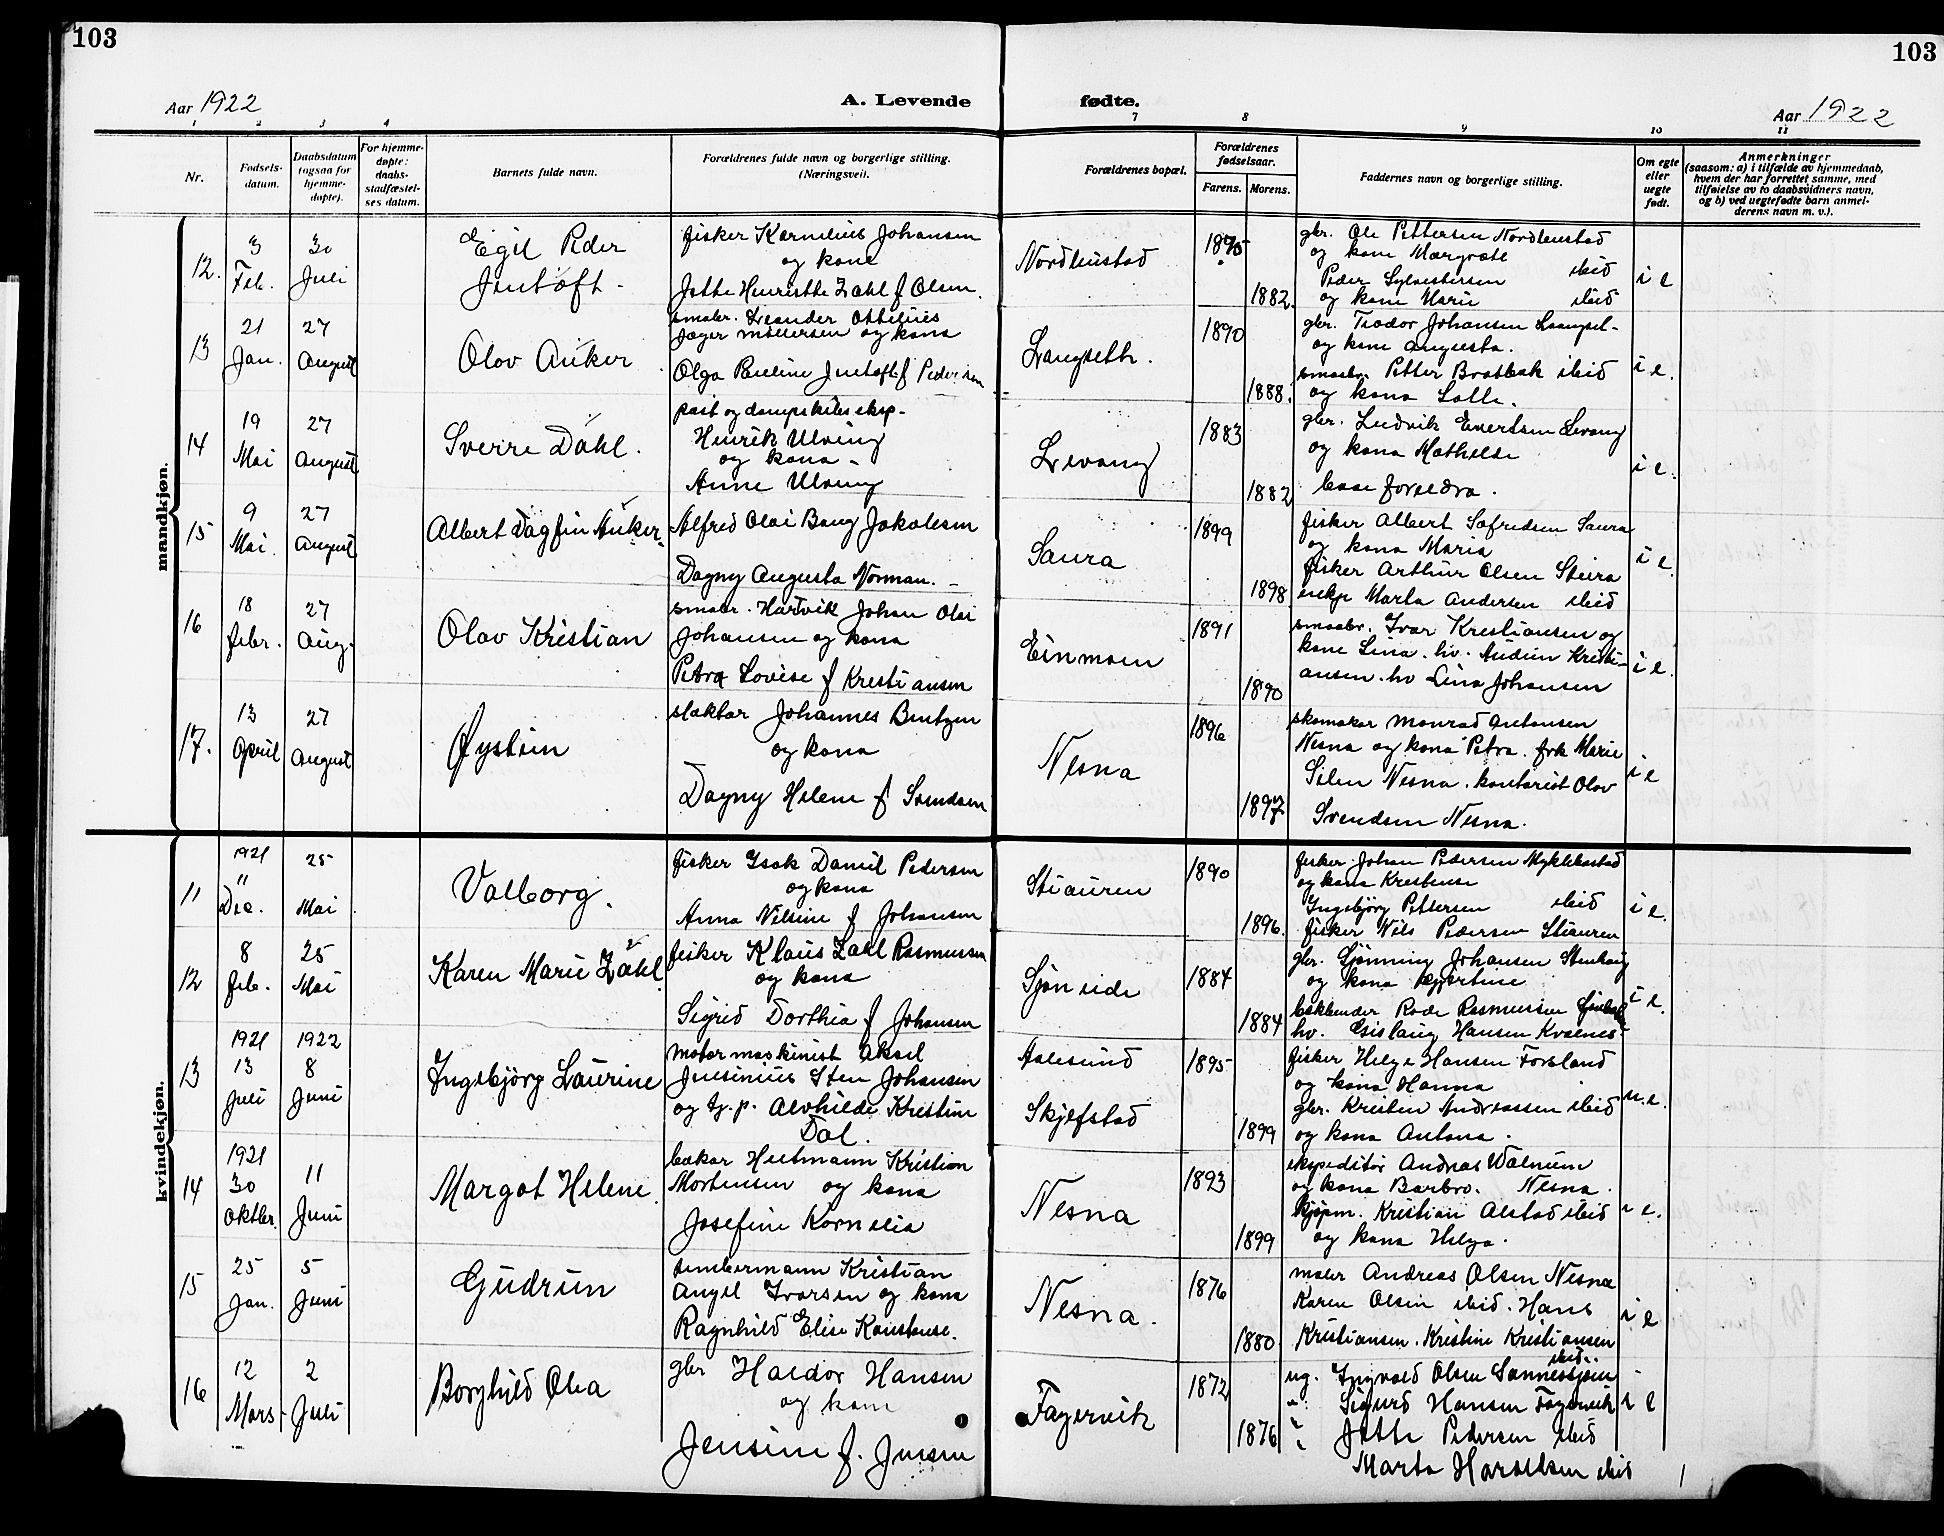 103
103
Aar 1922
A. Levende
fødte.
Aar 1922
1 2 3 4 7 8 9 10 11
Nr.
Fødsels-
datum.
Daabsdatum
(ogsaa for
hjemme-
døpte).
For hjemme-
døpte:
daabs-
stadfæstel-
ses datum.
Barnets fulde navn.
Forældrenes fulde navn og borgerlige stilling.
(Næringsvei).
Forældrenes bopæl.
Forældrenes
fødselsaar.
Farens.
Morens.
Faddernes navn og borgerlige stilling.
Om egte
eller
uegte
født.
Anmerkninger
(saasom: a) i tilfælde av hjemmedaab,
hvem der har forrettet samme, med
tilføielse av to daabsvidners navn,
og b) ved uegtefødte barn anmel-
derens navn m. v.).
mandkjøn.
12.
3
Feb.
30
Juli
Egil Peder
Jentoft
fisker Kornelius Johansen
og kone
Jette Henriette Zahl f Olsen.
1882.
gbr. Ole Pettersen
og kone Margrete
Peder Sylvestersen ibid
og kone Marie ibid
i e
13
21
Jan.
27
August
Olov Anker
smabr. Leander
Jæger Mortensen og kona
Olga Pauline Jentoft f Pedersen
Langseth.
1890
1888.
gbr. Teodor Johansen Langset-
og kone Augusta.
smaabr. Petter Bratbak ibid
og kona Lalla.
i e.
14
19
Mai
27
August
Sverre Dahl.
post og dampskibseksp.
Henrik Ulving
og kona
Anne Ulving
Levang
1883
1882
gbr. Ludvik Evertsen Levang
og kona Mathilde
base foreldra.
i e.
15
9
Mai.
27
August
Albert Dagfin Anker
Alfred Olai Bang Jakobsen
Dagny Augusta Norman.
Saura
1899
1898
fisker Albert Sofredsen Saura
og kona Maria
fisker Arthur Olsen
Marta Andersen ibid
i e.
16
18
febr.
27
Aug.
Olav Kristian
smaabr. Hartvik Johan Olai
Johansen og kona
Petra Lovise f Kristiansen
Einmoen
1891
1890
smaabr. Ivar Kristiansen og
kone Lina. hv. Audun Kristi-
ansen. hv Lina Johansen
i e.
17.
13
April
27
August
Øystein
slaktar Johannes Bentzen
og kona
Dagny Helene f Svendsen
Nesna
1896
1897
skomakar Monrad Antonsen
Nesna og kona Petra. frk Marie
Nesna. kontorist Olav
Svendsen Nesna.
i e
kvindekjøn.
11
1921
11
Des.
25
Mai
Valborg.
fisker Isak Daniel Pedersen
og kona
Anna Nilsine f Johansen
Stiauren
1890
1896.
fisker Johan Pedersen Myklebostad
og kona Kristense
Ingebjørg Pettersen ibid
fisker Nils Pedersen Stiauren
i e.
12
8
feb.
25
Mai
Karen Marie Zahl
fisker Klaus Zahl Rasmussen
og kona
Sigrid Dorthea f Johansen
Sjøneide
1884
1884
gbr. Sjønning Johansen Stenhaug
og kona
Rasmussen
hv. Gislaug Hansen
i e.
13
1921
13
Juli
1922
8
Juni
Ingebjørg Laurine
motormaskinist Aksel
Jensinius Sten Johansen
og tj.p. Alvhilde Kristine
Dal.
Aalesund
Skjelfstad
1895
1899
fisker Helge Hansen Forsland
og kona Hanna
gbr. Kristen Andreassen ibid
og kona Antona.
u. e.
14
1921
30
Oktbr.
11
Juni
Margot Helene.
bakar Hertmann Kristian
Mortensen og kona
Josefine Kornelia
Nesna
1893
1899
ekspeditør Andreas Walnum
og kona Barbro. Nesna.
Kjøpm. Kristian Alstad ibid
og kona Helga.
i e.
15
25
Jan.
5
Juni
Gudrun
tømbermann Kristian
Angel Ivarsen og kona
Ragnhild Elise Konstanse.
Nesna.
1876
1880
maler Andreas Olsen Nesna
Karen Olsen ibid. Hans
Kristiansen. Kristine Kristiansen
ibid..
i e
16
12
Mars
2
Juli
Borghild Olea
gbr Haldor Hansen
og kone
Jensine f. Jensen
Fagervik
1872
1876
ug. Ingvald Olsen
" Sigurd Hansen Fagervik
" Jette Pedersen ibid
" Marta Haraldsen ibid
i e